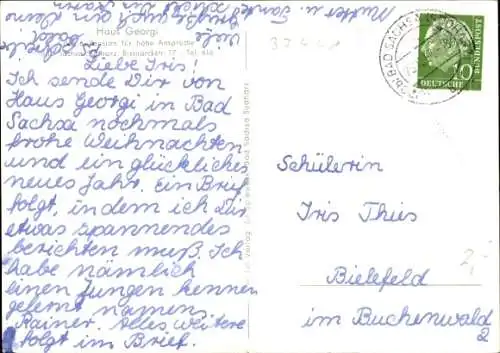 Haus Georgi
für hohe Ansprüche
Bad Sachsa, Südharz, Bismarckstr. 17 Tel. 416
Liebe Iris!
Ich sende Dir von
Haus Georgi in Bad
Sachsa nochmals
frohe Weihnachten
und ein glückliches
neues Jahr. Ein Brief
folgt, in dem ich Dir
etwas spannendes
berichten muß. Ich
habe nämlich
einen Jungen kennen
gelernt namens
Rainer. Alles weitere
folgt im Brief.
Viele
BAD SACHSA
10
DEUTSCHE
BUNDESPOST
Schülerin
Iris Thies
Bielefeld
im Buchenwald
2
2,-